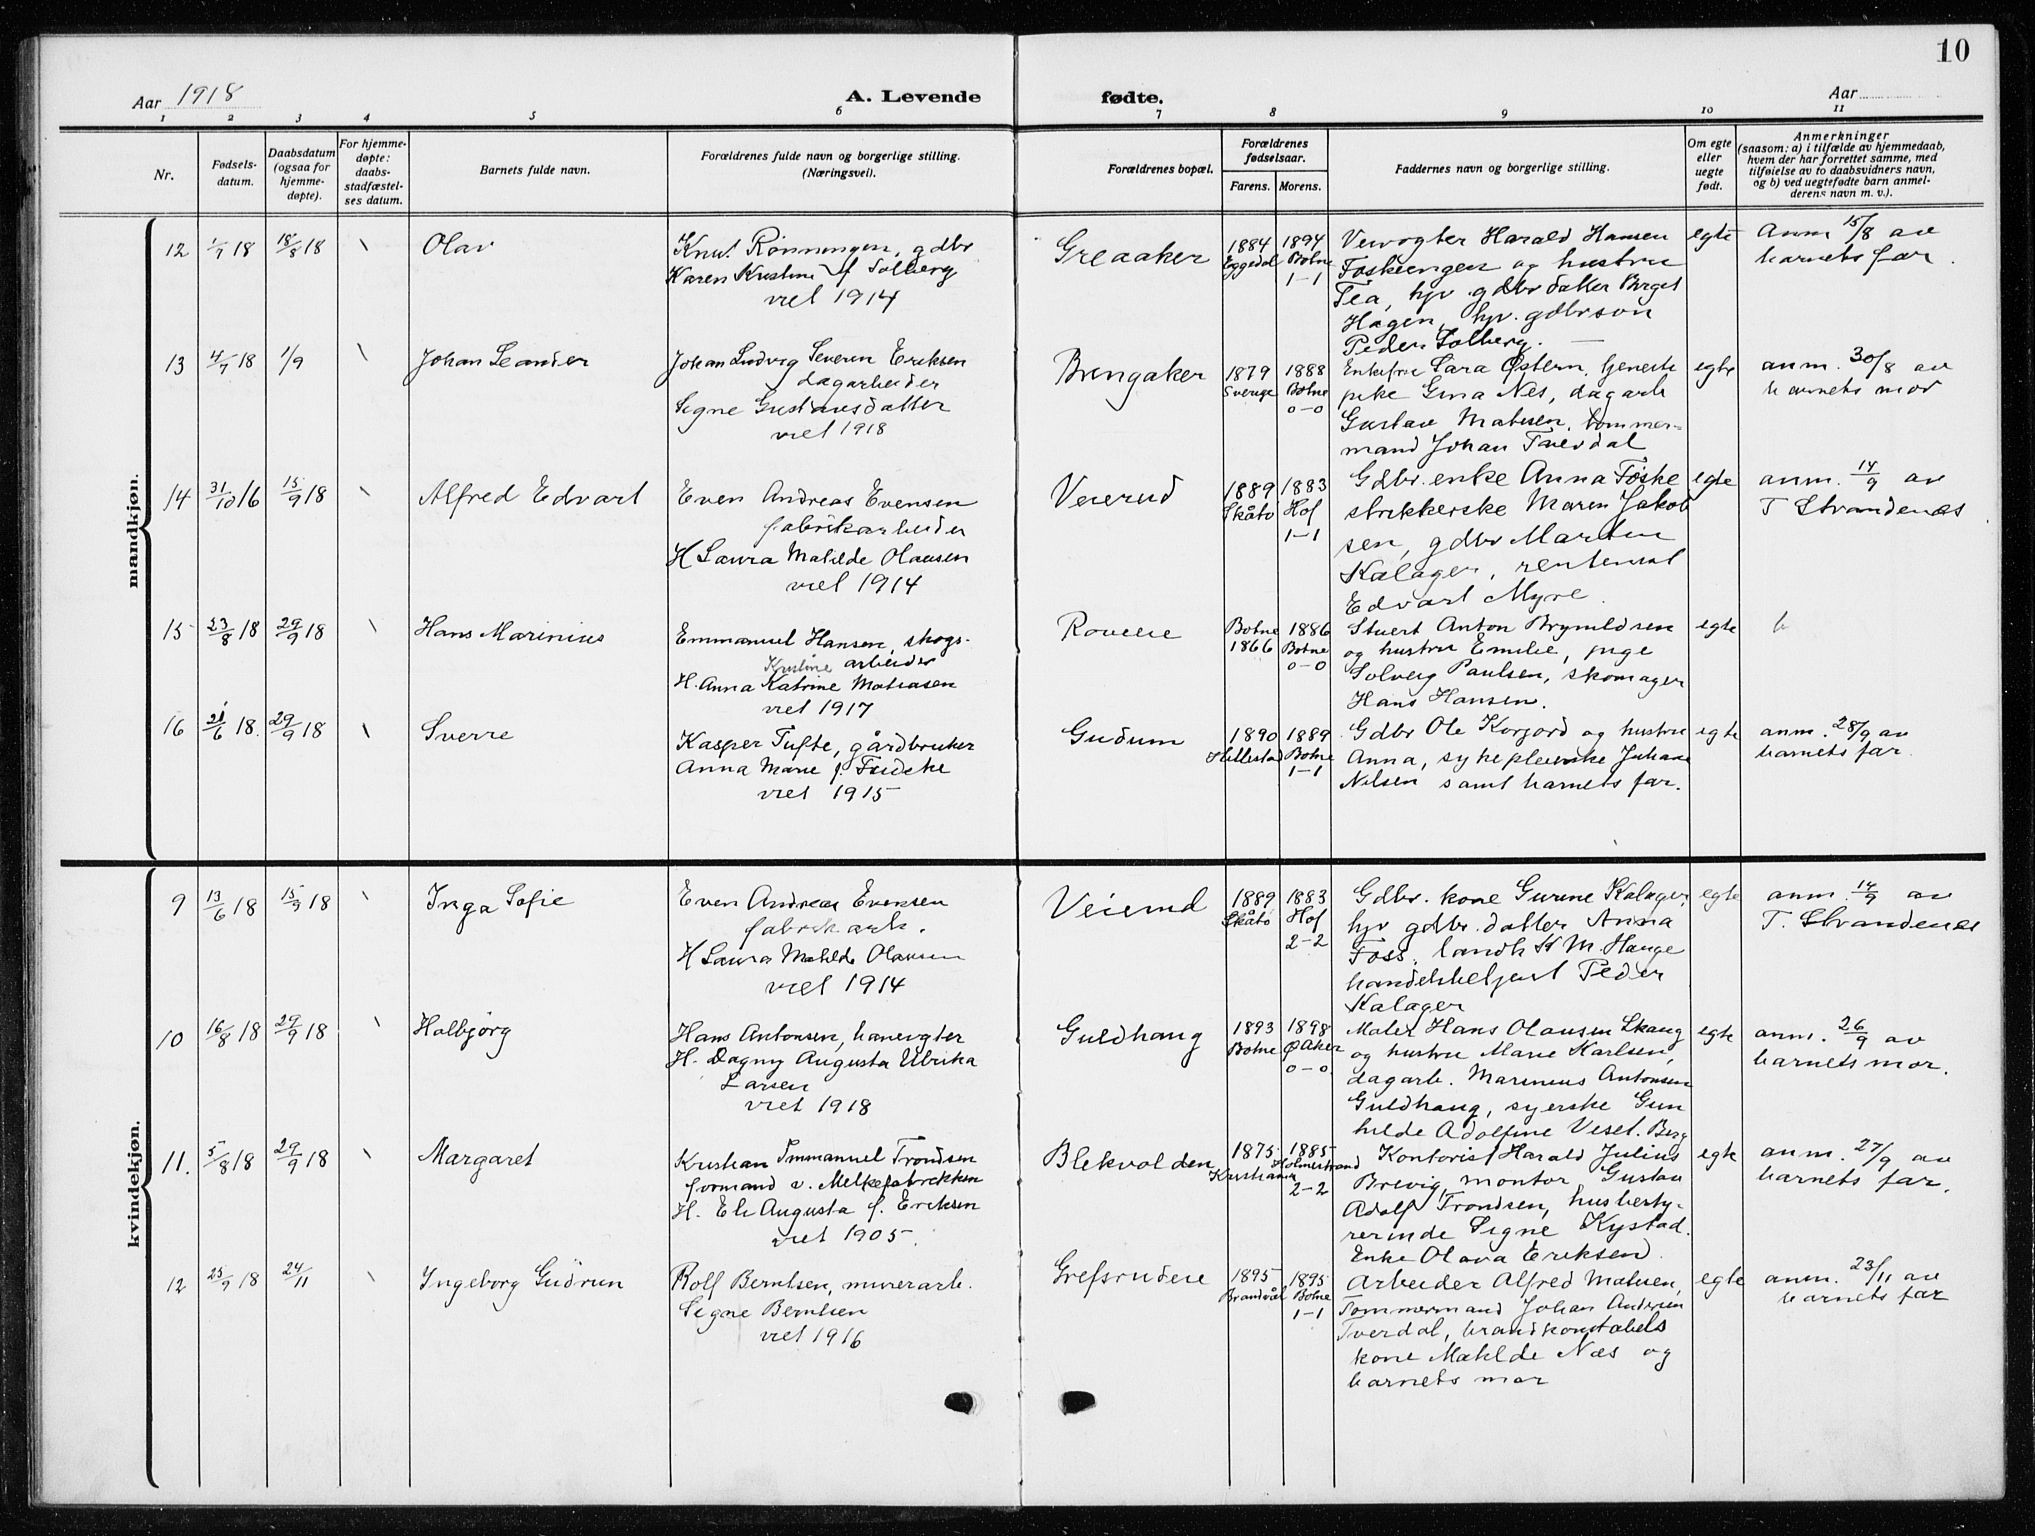 10
Aar 1918
A. Levende fødte.
Aar
1 2 3 4 5 6 7 8 9 10 11
Nr.
Fødsels-
datum.
Daabsdatum
(ogsaa for
hjemme-
døpte).
For hjemme-
døpte:
daabs-
stadfæstel-
ses datum.
Barnets fulde navn.
Forældrenes fulde navn og borgerlige stilling.
(Næringsvei).
Forældrenes bopæl.
Forældrenes
fødselsaar.
Farens. Morens.
Faddernes navn og borgerlige stilling.
Om egte
eller
uegte
født.
Anmerkninger
(saasom: a) i tilfælde av hjemmedaab,
hvem der har forrettet samme, med
tilføielse av to daabsvidners navn,
og b) ved uegtefødte barn anmel-
derens navn m. v.).
mandkjøn.
12
1/7 18
18/8 18
Olav
Knut Rønningen, gdbr
Karen Kristine f Solberg
viet 1914
Greaaker
1884
Eggedal
1894
Botne
1-1
Veivogter Harald Hansen
og hustru
Tea, hjv gdbr datter Borgel
Hagen, hjv. gdbrsøn
Peder Solberg.
egte
Anm 15/8 av
barnets far.
13
4/7 18
1/9
Johan Leander
Johan Ludvig Severin Eriksen
dagarbeider
Signe Gustavsdatter
viet 1918
Brengaker
1879
Sverige
1888
Botne
0-0
Enkefru Sara Østern, tjeneste
pike Gina Nes, dagarb
Gustav Matisen, tømmer-
mand Johan Tverdal
egte
anm. 30/8 av
barnets mor
14
31/10 16
15/9 18
Alfred Edvart
Even Andreas Evensen
fabrikarbeider
H Laura Matilde Olausen
viet 1914
Veierud
1889
Skåtø
1883
Hof
1-1
Gdbr. enke Anna Foske
strikkerske Maren Jakob
sen, gdbr Martin
Kalager, rentenist
Edvart Myre.
egte
anm. 14/9 av
T Strandenæs
15
23/8 18
29/9 18
Hans Marinius
Emmanuel Hansen, skogs-
arbeider
Kristine
H. Anna Katrine Matiasen
viet 1917
Roveie
Botne
1866
1886
Botne
0-0
Stuert Anton Brynildsen
og hustru Emilie, pige
Solveig Paulsen, skomager
Hans Hansen.
egte
16
21/6 18.
29/9 18
Sverre
Kasper Tufte, gårdbruker
Anna Marie f.
viet 1915
Gudum
1890
Hillestad
1889
Botne
1-1
Gdbr Ole Korsjord og hustru
Anna, sykepleierske Johane
Nilsen samt barnets far.
egte
anm. 28/9 av
barnets far.
kvindekjøn.
9
13/6 18
15/9 18
Inga Sofie
Even Andreas Evensen
fabrikarb.
H Laura Matilde Olausen
viet 1914
Veierud
1889
Skåtø
1883
Hof
2-2
Gdbr. kone Gurine Kalager
hjv gdbr. datter Anna
Foss, landh K M. Hauge
handelsbetjent Peder
Kalager
egte
anm. 14/9 av
T. Strandenæs
10
16/8 18
29/9 18
Halbjørg
Hans Antonsen, banevogter
H. Dagny Augusta Ulrika
Larsen
viet 1918
Guldhaug
1893
Botne
1898
Ø Aker
0-0
Maler Hans Olausen Skaug
og hustru Marie Karlsen,
dagarb. Marinius Antonsen
Guldhaug, syerske Gun
hilde Adolfine Vesel. Berg
egte
anm. 26/9 av
barnets mor.
11.
5/8 18
29/9 18
Margaret
Kristian Immanuel Trondsen
formand v. Melkefabrikken
H. Eli Augusta f. Eriksen
viet 1905.
Blekvolden
1875
Kristiania
1885
Holmestrand
2-2
Kontorist Harald Julius
Brevig, montør Gustav
Adolf Trondsen, husbesty-
rerinde Signe Kystad.
Enke Olava Eriksen.
egte
anm. 27/9 av
barnets far.
12
25/9 18
24/11
Ingeborg Gudrun
Rolf Berntsen, murerarb.
Signe Berntsen
viet 1916
Grefsrudeie
1895
Brandval
1895
Botne
1-1
Arbeider Alfred Matisen,
Tømmermand Johan Andersen
Tverdal, brandkonstabels
kone Matilde Næs og
barnets mor
egte
anm. 23/11 av
barnets far